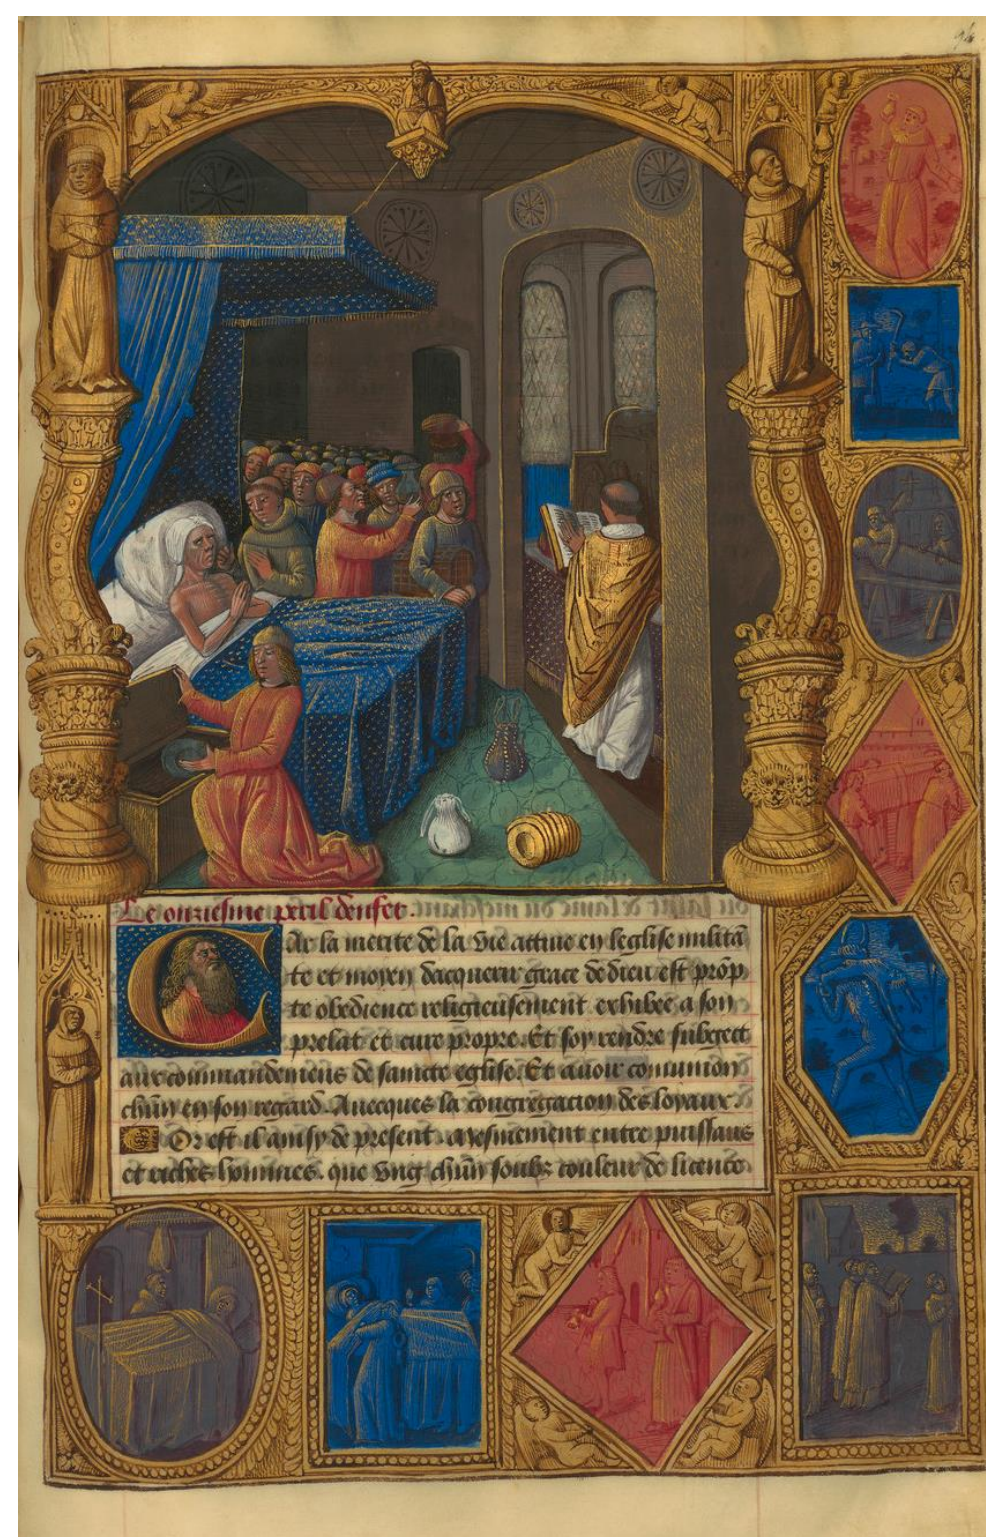 94
Le onziesme peril denfer.
Car la merite de la vie actiue en leglise milita
te et moyen dacquerir grace de dieu est prop
te obedience religieusement exhibee a son
prelat et cure propre. Et soy rendre subgect
aux commandemens de saincte eglise. Et auoir comunion
chun en son regard. Auecques la congregacion des loyaux.
Or est il ainsy de present. mesmement entre puissans
et riches hommes. que vng chun soubz couleur de licence